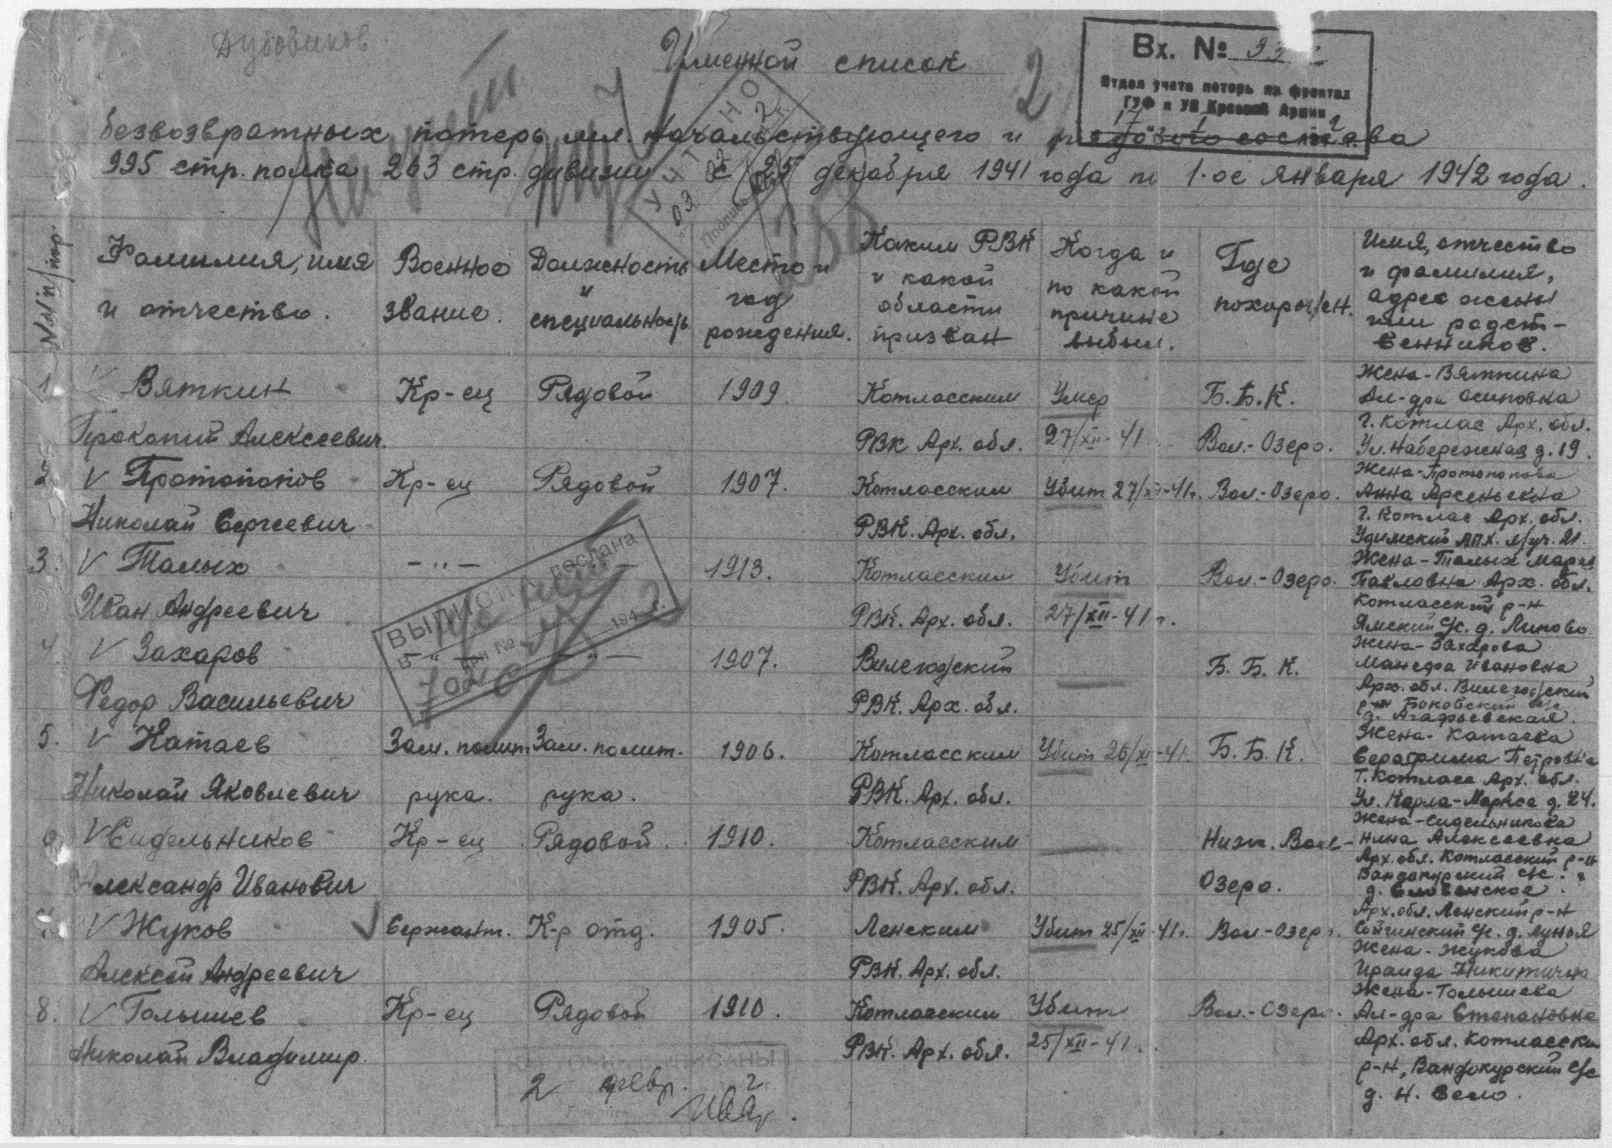 Дубовиков
Именной список
2
Вх. №
Отдел учета потерь на фронтах
ГУФ и УВ Красной Армии
17
безвозвратных потерь мл. начальствующего и рядового состава
995 стр. полка 263 стр. дивизии с 25 декабря 1941 года по 1-ое января 1942 года.
УЧТЕНО
№№ п/пор.
Фамилия, имя и отчество.
Военное звание.
Должность и специальность
Место и год рождения.
Каким РВК и какой области призван
Когда и по какой причине выбыл.
Где похоронен.
Имя, отчество и фамилия, адрес жены или родственников.
1 Вяткин Кр-ец Рядовой 1909 Котласским Умер Б.Б.К. Жена-Вяткина
Ал-дра Осиповна
Прокопий Алексеевич РВК Арх. обл. 27/XII-41 Вол.-Озеро. г. Котлас Арх. обл.
Ул. Набережная д. 19.
2 V Протопопов Кр-ец Рядовой 1907. Котласским Убит 27/XII-41г. Вол.-Озеро. Жена-Протопопова
Анна Арсеньевна
Николай Сергеевич РВК. Арх. обл. г. Котлас Арх. обл.
Удимский ЛПХ. л/уч. 21.
3. V Малых -"- 1913. Котласским Убит Вол.-Озеро. Жена-Малых Мария
Павловна Арх. обл.
Иван Андреевич РВК. Арх. обл. 27/XII-41г. Котласский р-н
Ямский с/с. д. Липово
ВЫПИСКА послана
в
№
194 г.
702
4. V Захаров -"- -"- 1907. Вилегодский Б.Б.К. Жена-Захарова
Ивановна
Федор Васильевич РВК. Арх. обл. Арх. обл. Вилегодский
р-н
д. Агафьевская.
5. V Катаев Зам. полит Зам. полит. 1906. Котласским Убит 26/XII-41. Б.Б.К. Жена-Катаева
Серафима Петровна
Николай Яковлевич рука. рука. РВК. Арх. обл. г. Котлас Арх. обл.
Ул. Карла-Маркса д. 24.
6 V Сидельников Кр-ец Рядовой. 1910. Котласским Ниж. Вол- Жена-Сидельникова
Нина Алексеевна
Александр Иванович РВК. Арх. обл. Озеро. Арх. обл. Котласский р-н
Вандокурский с/с.
д. Словенское.
V Жуков Сержант. К-р отд. 1905. Ленским Убит 25/XII-41г. Вол-Озеро. Арх. обл. Ленский р-н
Сойгинский с/с. д. Лунья
Жена-Жукова
Алексей Андреевич РВК. Арх. обл. Ираида Никитична
8. V Голышев Кр-ец Рядовой 1910. Котласским Убит Вол.-Озеро. Жена-Голышева
Ал-дра Степановна
Николай Владимир. РВК. Арх. обл. 25/XII-41. Арх. обл. Котласский
р-н, Вандокурский с/с
д. Н. Село.
2 февр.